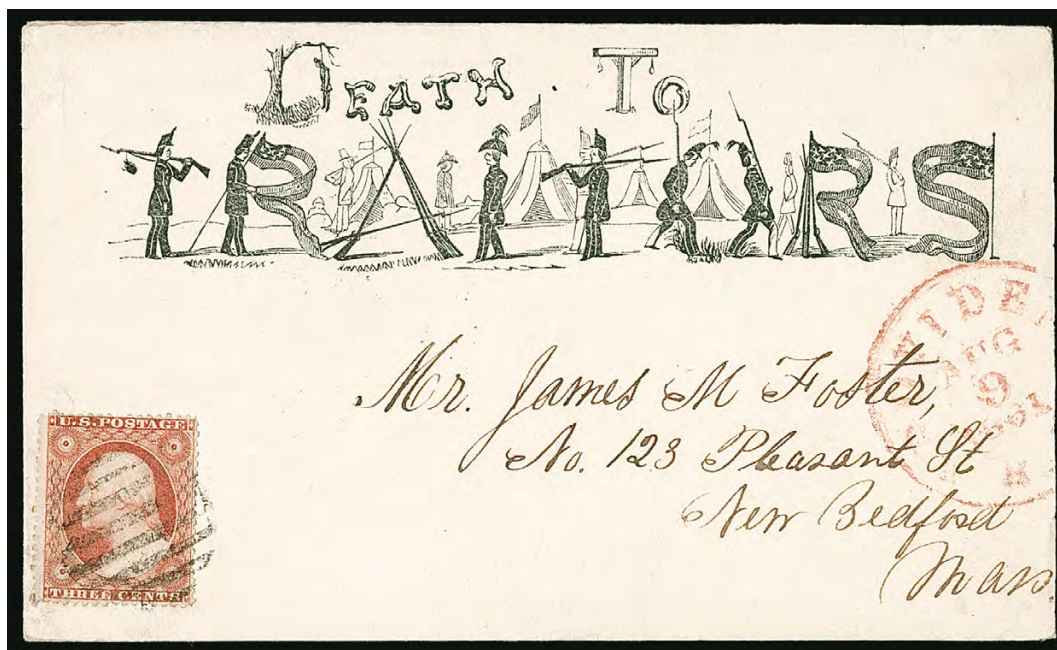 DEATH TO
TRAITORS
VIDE
AUG
9
Mr. James M Foster,
No. 123 Pleasant St
New Bedford
Mass.
U.S. POSTAGE
THREE CENTS